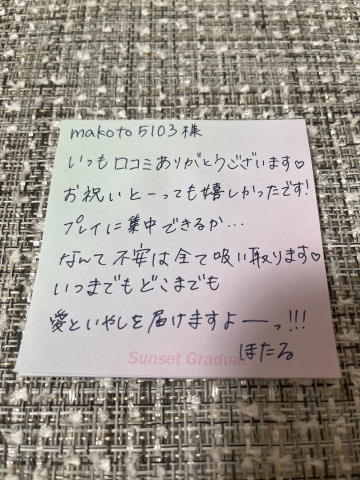 makoto5103様
いつも口コミありがとうございます♡
お祝いとーっても嬉しかったです!
プレイに集中できるか…
なんて不安は全て吸い取ります♡
いつまでもどこまでも
愛といやしを届けますよーっ!!!
Sunset Gradual
ほたる